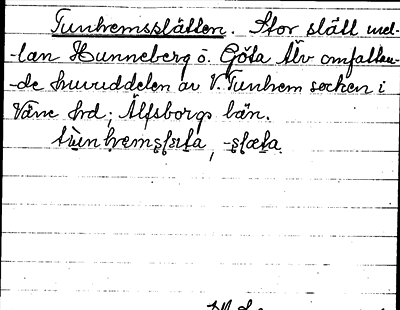 Tunhemsslätten. Stor slätt mel-
-lan Hunneberg o. Göta Älv omfattan-
-de huvuddelen av V. Tunhem socken i
Väne hrd; Älfsborgs län.